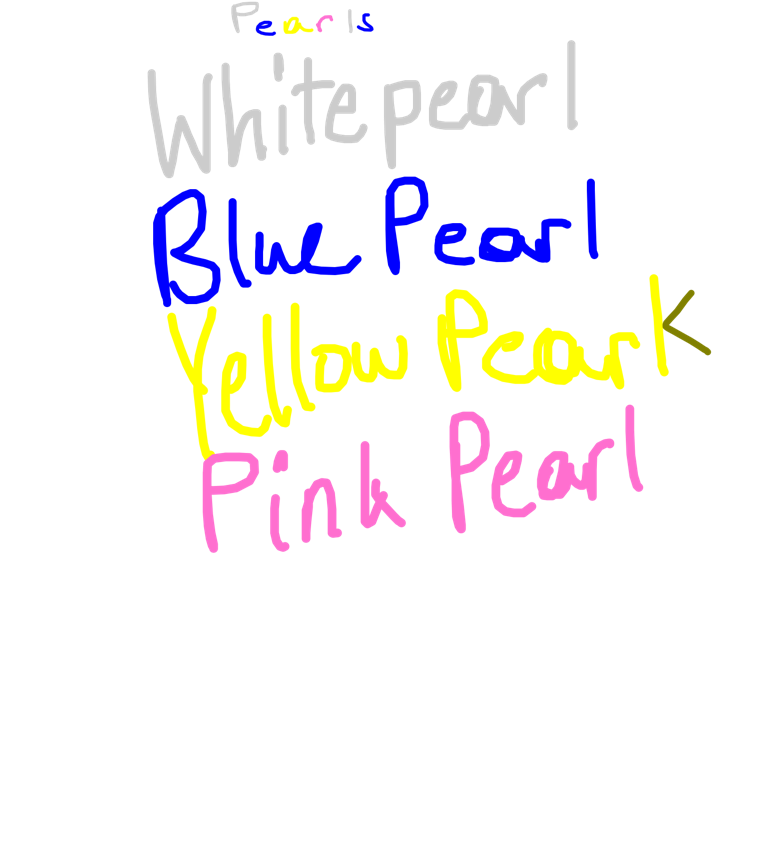 Pearls
White pearl
Blue Pearl
Yellow Pearl<
Pink Pearl